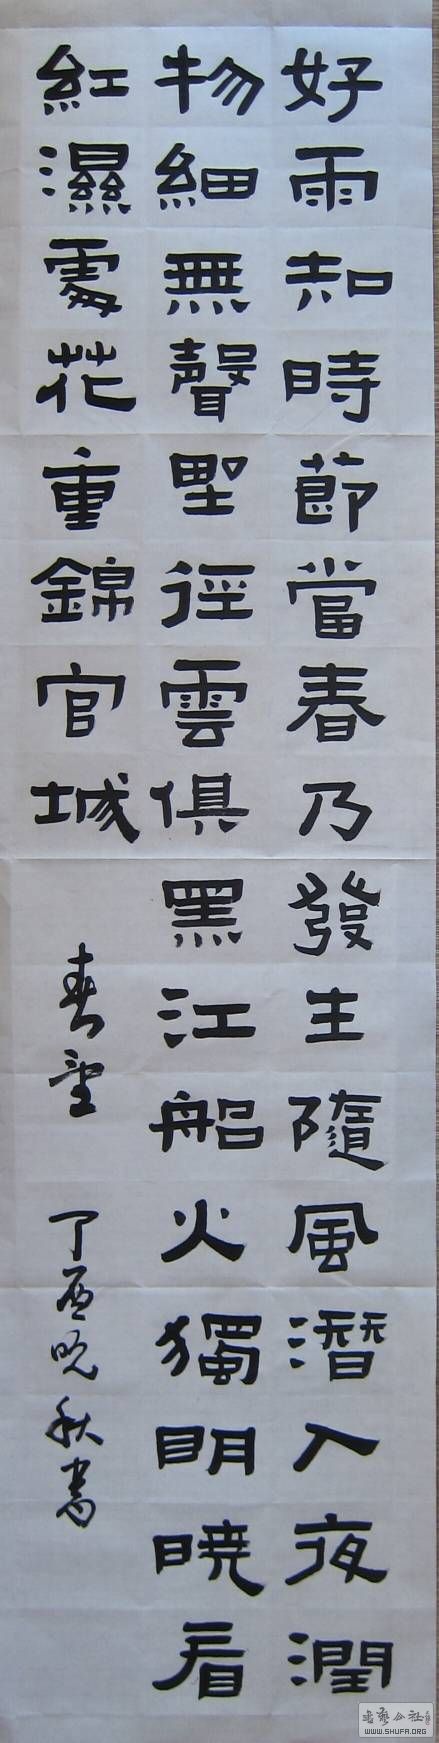 好雨知時節當春乃發生隨風潛入夜潤
物細無聲野徑雲俱黑江船火獨明曉看
紅濕處花重錦官城
春望
丁酉晚秋書
书艺公社
WWW.SHUFA.ORG